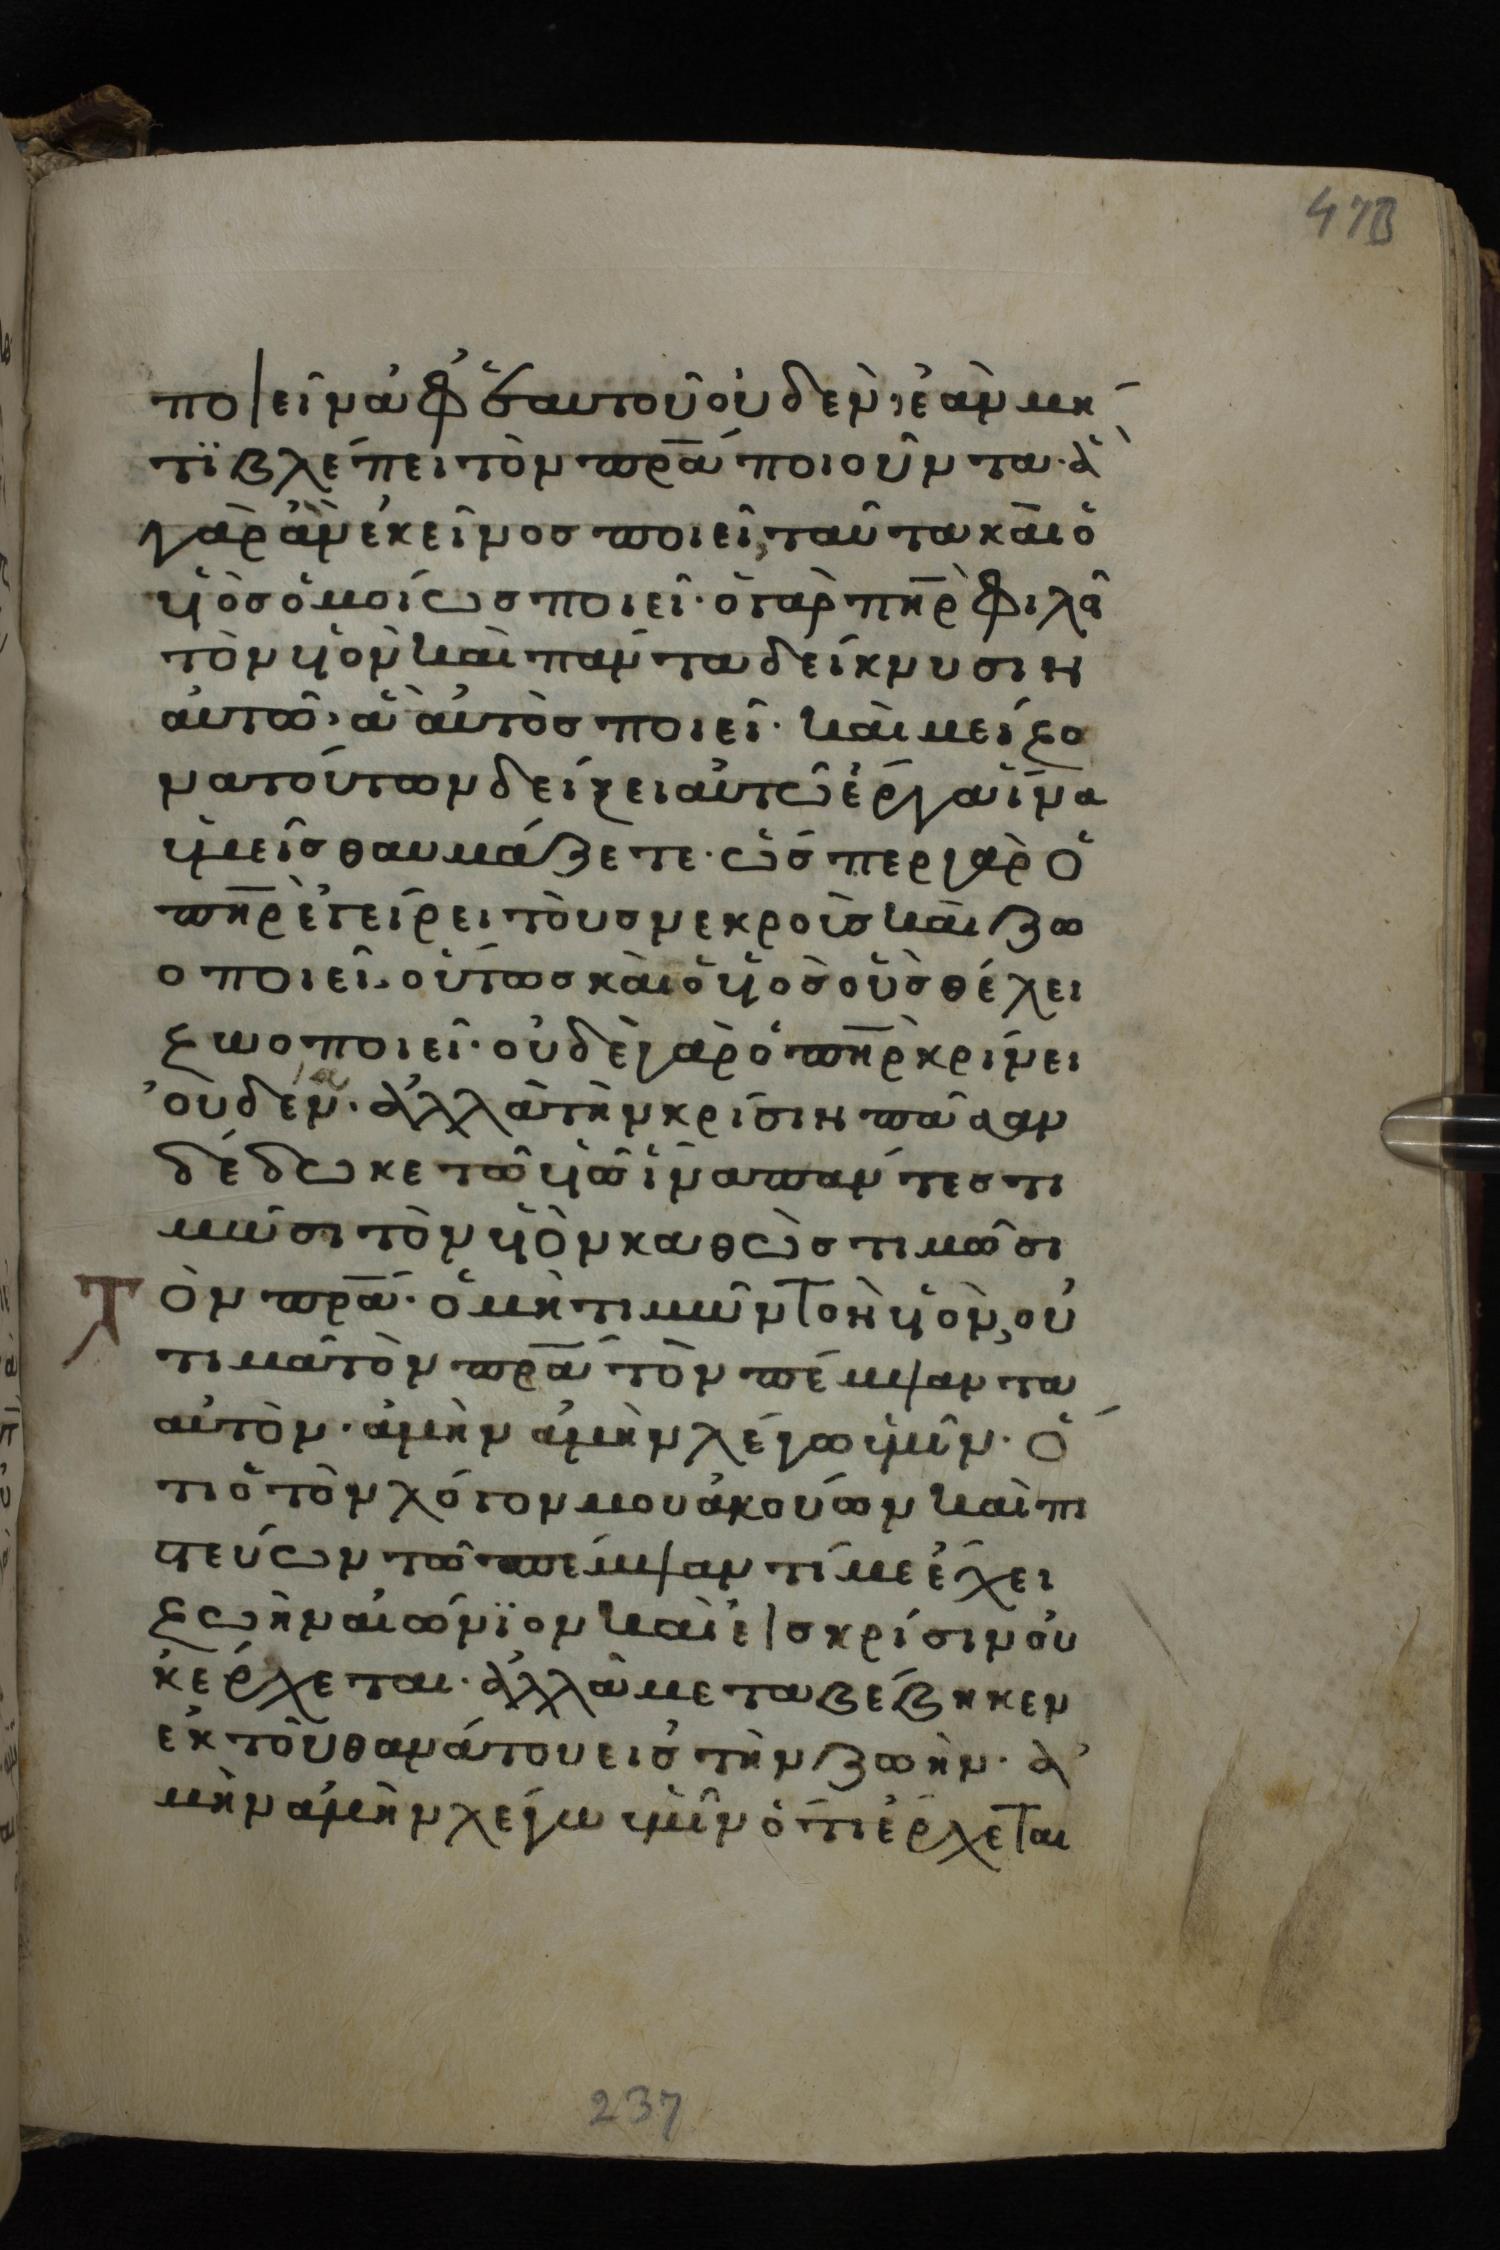 473
ποιεῖν ἀφ' ἑαυτοῦ οὐδὲν, ἐὰν μή
τϊ βλέπει τὸν πρ̅α ποιοῦντα· ἃ
γὰρ ἂν ἐκεῖνος ποιεῖ, ταῦτα καὶ ὁ
ὑὸς ὁμοίως ποιεῖ· ὁ γὰρ πη̅ρ φιλεῖ
τὸν ὑὸν καὶ πάντα δείκνυσιν
αὐτῶ, ἃ αὐτὸς ποιεῖ· καὶ μείζο
να τούτων δείξει αὐτῶ ἔργα ἵνα
ὑμεῖς θαυμάζετε· ὥσπερ γὰρ ὁ
πη̅ρ ἐγείρει τοὺς νεκροὺς καὶ ζω
οποιεῖ, οὕτως καὶ ὁ ὑὸς οὓς θέλει
ζωοποιεῖ· οὐδὲ γὰρ ὁ πη̅ρ κρίνει
οὐδένα· ἀλλὰ τὴν κρίσιν πᾶσαν
δέδωκε τῶ ὑῶ ἵνα πάντες τι
μῶσι τὸν ὑὸν καθὼς τιμῶσι
Τὸν πρ̅α· ὁ μὴ τιμῶν τὸν ὑὸν, οὐ
τιμᾶ τὸν πρ̅α τὸν πέμψαντα
αὐτὸν· ἀμὴν ἀμὴν λέγω ὑμῖν· ὅ
τι ὁ τὸν λόγον μου ἀκούων καὶ πι
στεύων τῶ πέμψαντί με ἔχει
ζωὴν αἰώνϊον καὶ εἰς κρίσιν οὐ
κ ἔρχεται· ἀλλὰ μεταβέβηκεν
ἐκ τοῦ θανάτου εἰς τὴν ζωήν· ἀ
μὴν ἀμὴν λέγω ὑμῖν ὅτι ἔρχεται
237